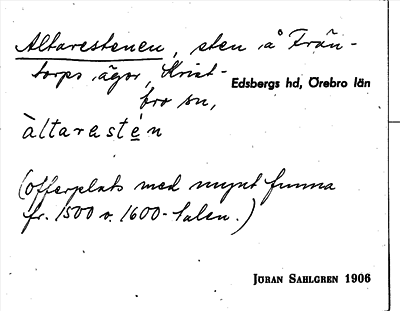 Altarestenen, sten å Från-
torps ägor, Krist-
bro sn, Edsbergs hd, Örebro län
àltarastén
(offerplats med mynt funna
fr. 1500 o. 1600-talen.)
JÖRAN SAHLGREN 1906